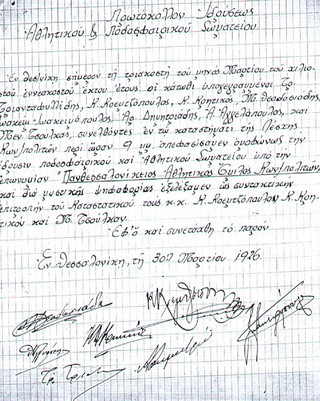 Πρωτόκολλον Ιδρύσεως
Αθλητικού & Ποδοσφαιρικού Σωματείου.
Εν Θεσ/νίκη σήμερον τη τριακοστή του μηνός Μαρτίου του χιλιο
στού εννεακοστού έκτου έτους οι κάτωθι υπογεγραμμένοι Τρ.
Τριανταφυλλίδης, Κ. Κρεμτζόπουλος, Κ. Κρητικός, Θεοδοσιάδης,
Ιωακείμ Ιωακειμόπουλος, Αρ. Δημητριάδης, Α. Αγγελόπουλος, και
Μεν. Τσούλκας, συνελθόντες εν τω καταστήματι της Λέσχης
Κων/πολιτών περί ώραν 9 μμ. απεφασίσαμεν ομοθύμως την
ίδρυσιν ποδοσφαιρικού και Αθλητικού Σωματείου υπό την
επωνυμίαν Πανθεσσαλονίκειος Αθλητικός Όμιλος Κων/πολιτών,
και διά μυστικής ψηφοφορίας εξελέξαμεν ως συντακτικήν
επιτροπήν του Καταστατικού τους κ.κ. Κ. Κρεμτζόπουλον, Κ. Κρη-
τικόν και Μ. Τσούλκαν.
Εφ' ω και συνετάχθη το παρόν
Εν Θεσσαλονίκη, τη 30η Μαρτίου 1926.